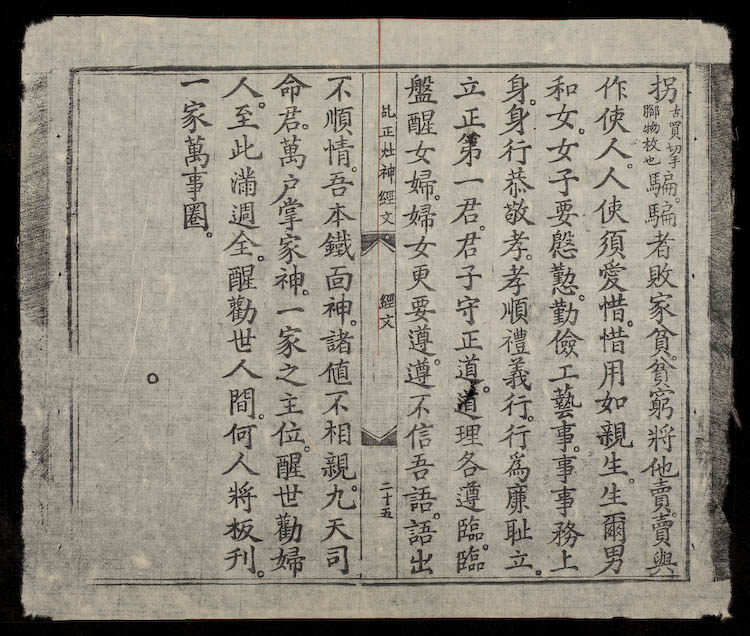 拐古買切手腳物枚也騙。騙者敗家貧。貧窮將他賣。賣與
作使人。人使須愛惜。惜用如親生。生爾男
和女。女子要慇懃。勤儉工藝事。事事務上
身。身行恭敬孝。孝順禮義行。行爲廉耻立。
立正第一君。君子守正道。道理各遵臨。臨
盤醒女婦。婦女更要遵。遵不信吾語。語出
乩正灶神經文 經文 二十五
不順情。吾本鐵面神。諸値不相親。九天司
命君。萬户掌家神。一家之主位。醒世勸婦
人。至此滿週全。醒勸世人間。何人將板刊。
一家萬事圈。